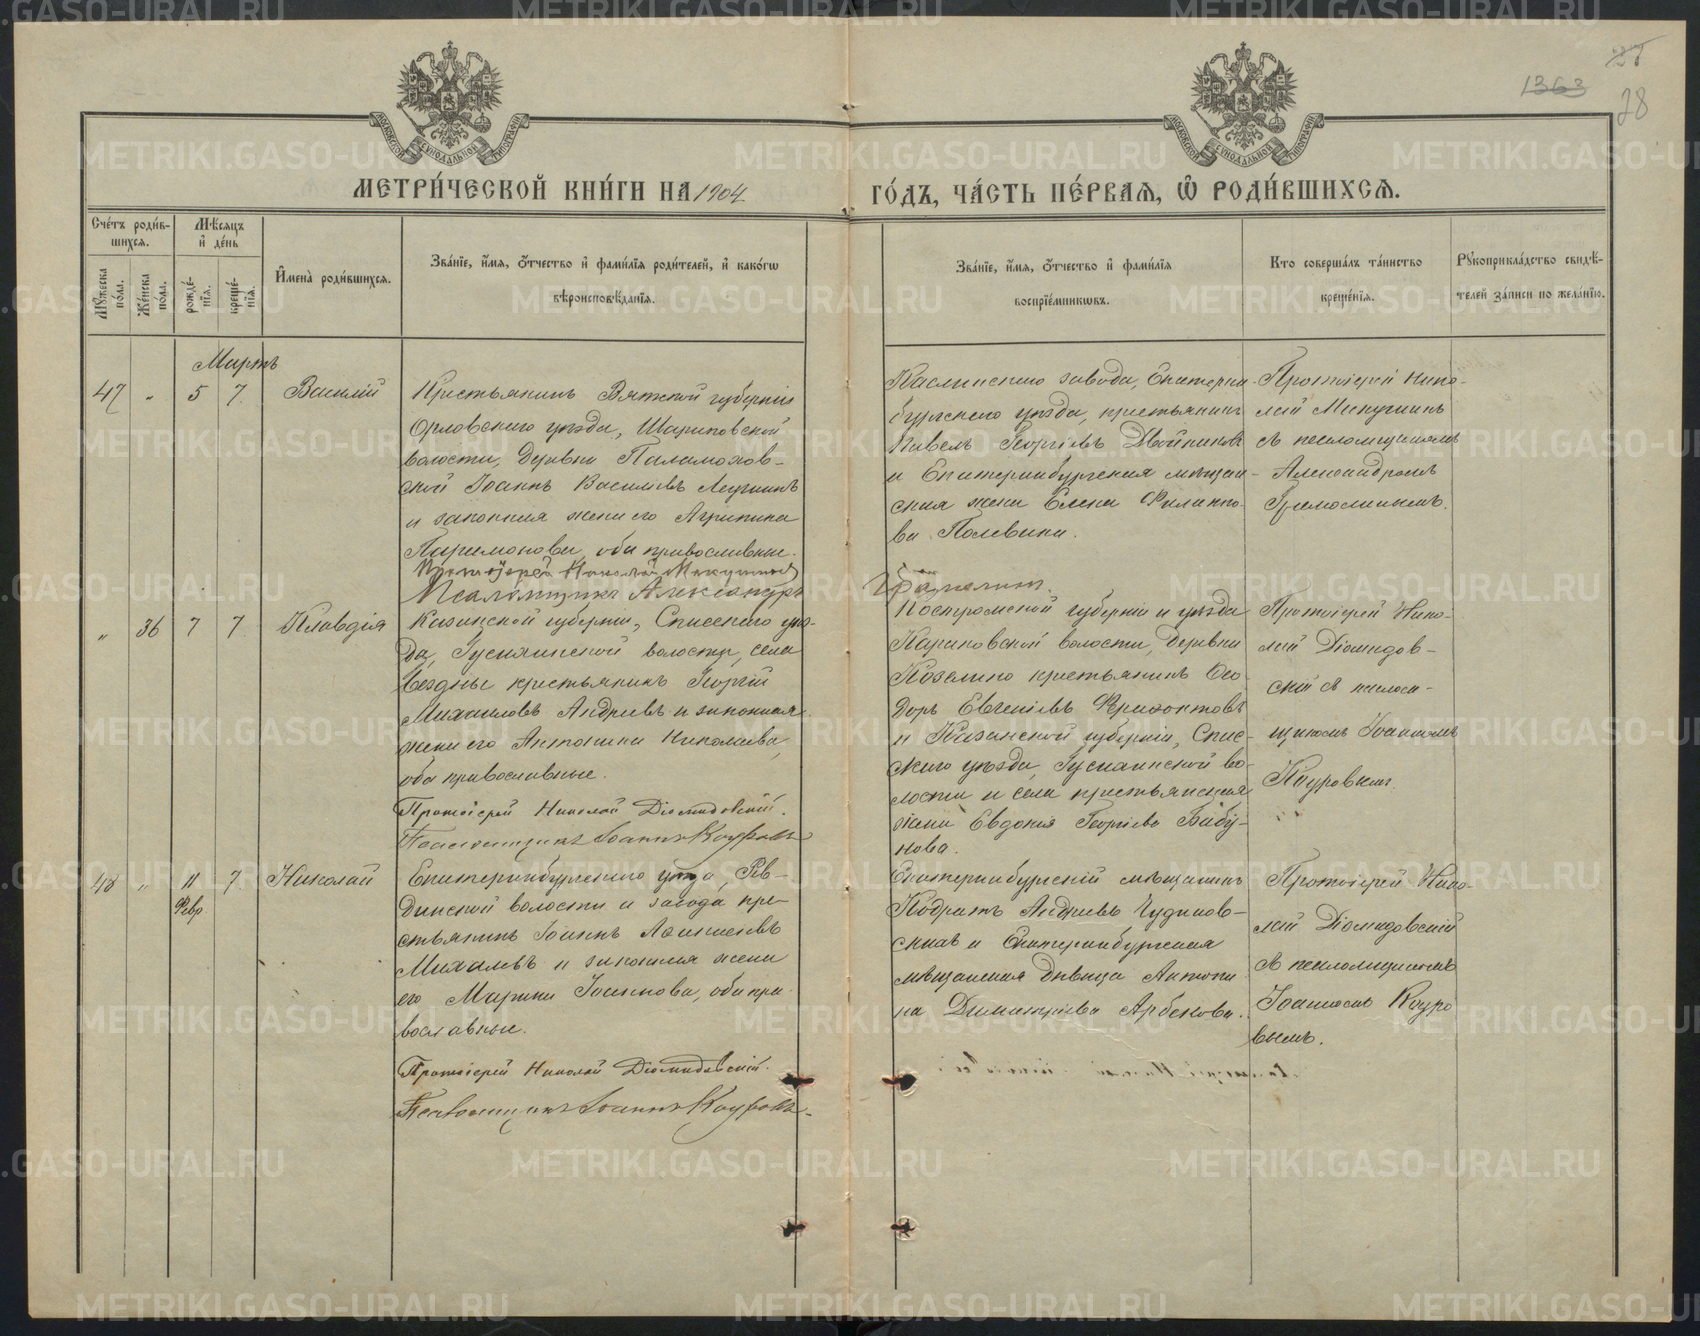 27
1363
28
МОСКОВСКОЙ СУНОДАЛЬНОЙ ТИПОГРАФІИ
МОСКОВСКОЙ СУНОДАЛЬНОЙ ТИПОГРАФІИ
МЕТРИ́ЧЕСКОЙ КНИ́ГИ НА 1904
ГО́ДЪ, ЧА́СТЬ ПЕ́РВАЯ, Ѡ҆ РОДИ́ВШИХСѦ.
Сче́тъ роди́в-
шихсѧ.
Мѣ́сѧцъ
и҆ де́нь
Мꙋ́жеска по́ла.
Же́нска по́ла.
рожде́нїѧ.
креще́нїѧ.
И҆мена̀ роди́вшихсѧ.
Зва́нїе, и҆́мѧ, ѻ҆́тчество и҆ фами́лїѧ роди́телей, и҆ како́гѡ
вѣроисповѣ́данїѧ.
Зва́нїе, и҆́мѧ, ѻ҆́тчество и҆ фами́лїѧ
воспрїе́мникѡвъ.
Кто соверша́лъ та́инство
креще́нїѧ.
Рꙋкоприкла́дство свидѣ́-
телей за́писи по жела́нїю.
Мартъ
47 " 5 7. Василій
Крестьянинъ Вятской губерніи
Орловскаго уѣзда, Шариповской
волости, Деревни
ской Іоаннъ Васильевъ
и законная жена его Агрипина
оба православные.
Протоіерей Николай Микушинъ
Псаломщикъ Александръ
Каслинскаго завода, Екатерин-
бургскаго уѣзда, крестьянинъ
Павелъ Георгіевъ Двойниковъ
и Екатеринбургская мѣщан-
ская жена Елена
ва Полевина.
Протоіерей Нико-
лай Микушинъ
съ псаломщикомъ
Александромъ
" 36 7 7 Клавдія
Казанской губерніи, Спасскаго уѣз-
да, волости, села
Бездны крестьянинъ Георгій
Михаиловъ Андреевъ и законная
жена его Антонина Николаева,
оба православные.
Протоіерей Николай Діомидовскій.
Псаломщикъ Іоаннъ Кауровъ
Костромской губерніи и уѣзда
волости, деревни
Козелино крестьянинъ Ѳео-
доръ Евгеніевъ
и Казанской губерніи, Спас-
скаго уѣзда, во-
лости и села крестьянская
жена Евдокія Георгіева Бабу-
нова.
Протоіерей Нико-
лай Діомидов-
скій съ псалом-
щикомъ Іоанномъ
Кауровымъ.
48 " 11 7. Николай
Февр.
Екатеринбургскаго уѣзда, Рев-
динской волости и завода кре-
стьянинъ Іоаннъ
Михалевъ и законная жена
его Марина Іоаннова, оба пра-
вославные.
Протоіерей Николай Діомидовскій.
Псаломщикъ Іоаннъ Кауровъ.
Екатеринбургскій мѣщанинъ
Кодратъ Андреевъ Чудинов-
скихъ и Екатеринбургская
мѣщанская дѣвица Антони-
на Димитріева Арбенова.
Протоіерей Нико-
лай Діомидовскій
съ псаломщикомъ
Іоанномъ Кауро-
вымъ.
METRIKI.GASO-URAL.RU